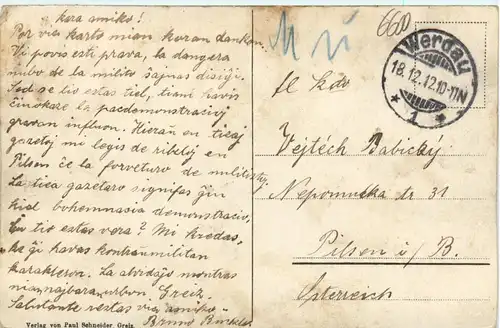 kara amiko!
Por via karto mian koran dankon.
Vi povis esti prava, la danĝera
nubo de la milito ŝajnas disiĝi.
Sed se tio estas tiel, tiam havis
ĉinokaze la pacdemonstracioj
gravan influon. Hieraŭ en tieaj
gazetoj mi legis de ribeloj en
Pilsen ĉe la forveturo de militistoj
La tiea gazetaro signifas ĝin
kiel bohemnacia demonstracio,
Ĉu tio estas vera? Mi kredas,
ke ĝi havas kontraŭmilitan
karakteron. La abordaĵo montras
nian najbaran urbon Greiz.
Salutante restas via amiko
Bruno
Verlag von Paul Schneider, Greiz.
6600
Werdau
18.12.12.10-11N
* 1 *
Vojtěch Babický
Nepomucka tr 31
Pilsen i/B.
Österreich